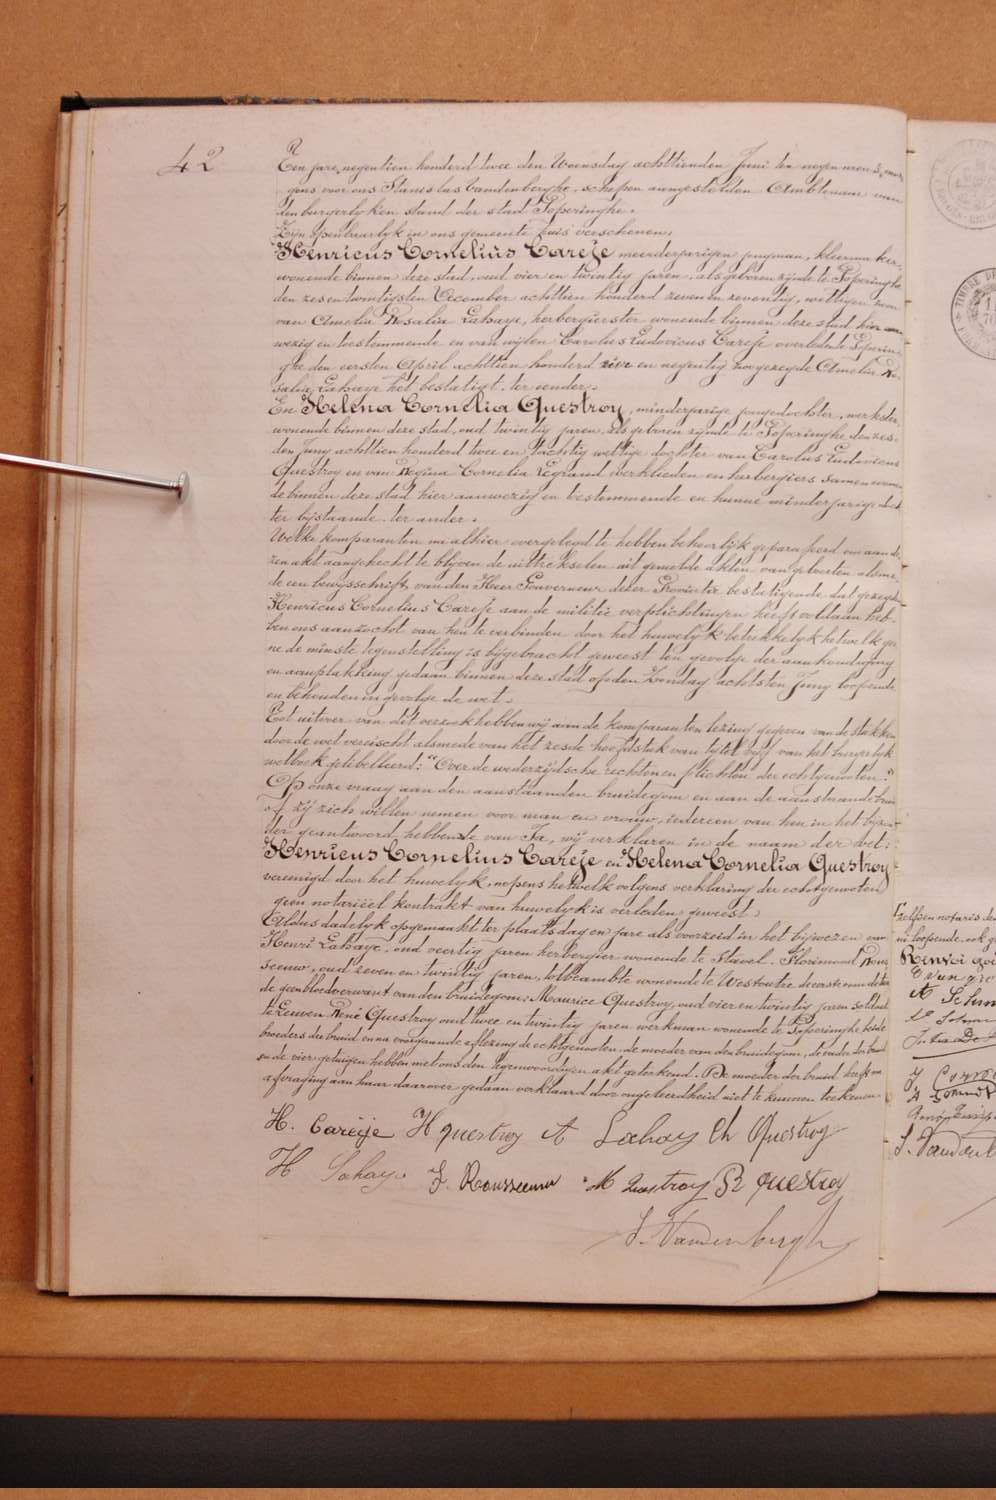 42
Ten jare negentien honderd twee den Woensdag achttienden Juni ten negen
gens voor ons Stanislas Vandenberghe, schepen aangestelden Ambtenaar van
den burgerlyken stand der stad Poperinghe.
Zijn openbaarlyk in ons gemeente huis verschenen:
Henricus Cornelius Careije meerderjarigen jongman, kleermaker,
wonende binnen deze stad, oud vier en twintig jaren, als geboren zijnde te Poperinghe
den zes en twintigsten December achttien honderd zeven en zeventig, wettigen zoon
van Amelia Rosalia Lahaye, herbergierster wonende binnen deze stad hier aan
wezig en toestemmende en van wijlen Carolus Ludovicus Careije overleden te Poperin-
ghe den eersten April achttien honderd vier en negentig hoogezegde Amelia Ro-
salia Lahaye het bestatigt. ter eender.
En Helena Cornelia Questroy, minderjarige jongedochter, werkster,
wonende binnen deze stad, oud twintig jaren, als geboren zijnde te Poperinghe den zes-
den Juny achttien honderd twee en tachtig wettige dochter van Carolus Ludovicus
Questroy en van Regina Cornelia Legrand werklieden en herbergiers samen wonen-
de binnen deze stad hier aanwezig en toestemmende en hunne minderjarige doch
ter bijstaande. ter ander.
Welke komparanten na alhier overgelegd te hebben behoorlijk geparafeerd om aan de-
zen akt aangehecht te blyven de uittrekselen uit gemelde akten van geboorten alsme-
de een bewijsschrift van den Heer Gouverneur dezer Provintie bestatigende dat gezegde
Henricus Cornelius Careije aan de militie verplichtingen heeft voldaan heb-
ben ons aanzocht van hen te verbinden door het huwelyk betrekkelyk hetwelk gee
ne de minste tegenstelling is bijgebracht geweest ten gevolge der aankondiging
en aanplakking gedaan binnen deze stad op den Zondag achtsten Juny loopende
en behouden in gevolge de wet.
Tot uitvoer van dit verzoek hebben wij aan de komparanten lezing gegeven van de stukken
door de wet vereischt alsmede van het zesde hoofdstuk van tytel vyf van het burgerlyk
wetboek getitelleerd: "Over de wederzijdsche rechten en plichten der echtgenoten."
Op onze vraag aan den aanstaanden bruidegom en aan de aanstaande bruid
of zij zich willen nemen voor man en vrouw, iedereen van hen in het bijzon-
der geantwoord hebbende van Ja, wij verklaren in de naam der wet:
Henricus Cornelius Careije en Helena Cornelia Questroy
vereenigd door het huwelyk, nopens hetwelk volgens verklaring der echtgenoten
geen notariëel kontrakt van huwelyk is verleden geweest.
Aldus dadelyk opgemaakt ter plaats dag en jare als voorzeid in het bijwezen van
Henri Lahaye, oud veertig jaren herbergier wonende te Stavel. Florimond Rous-
seeuw, oud zeven en twintig jaren, tolbeambte wonende te Westoutre de eerste oom
de geenbloedverwant van den bruidegom: Maurice Questroy, oud vier en twintig jaren soldaat
te Leuven René Questroy oud twee en twintig jaren werkman wonende te Poperinghe beide
broeders der bruid en na voorgaande aflezing de echtgenooten, de moeder van den bruidegom, de vader der bruid
en de vier getuigen hebben met ons den tegenwoordigen akt geteekend. De moeder der bruid heeft na
afvraging aan haar daarover gedaan verklaard door ongeleerdheid niet te kunnen teekenen.
H. Careije H questroy A Lahay Ch Questroy
H Lahay. F. Rousseeuw M Questroy R questroy
S. Vandenbergh
zelfsen notaris
Renvoi